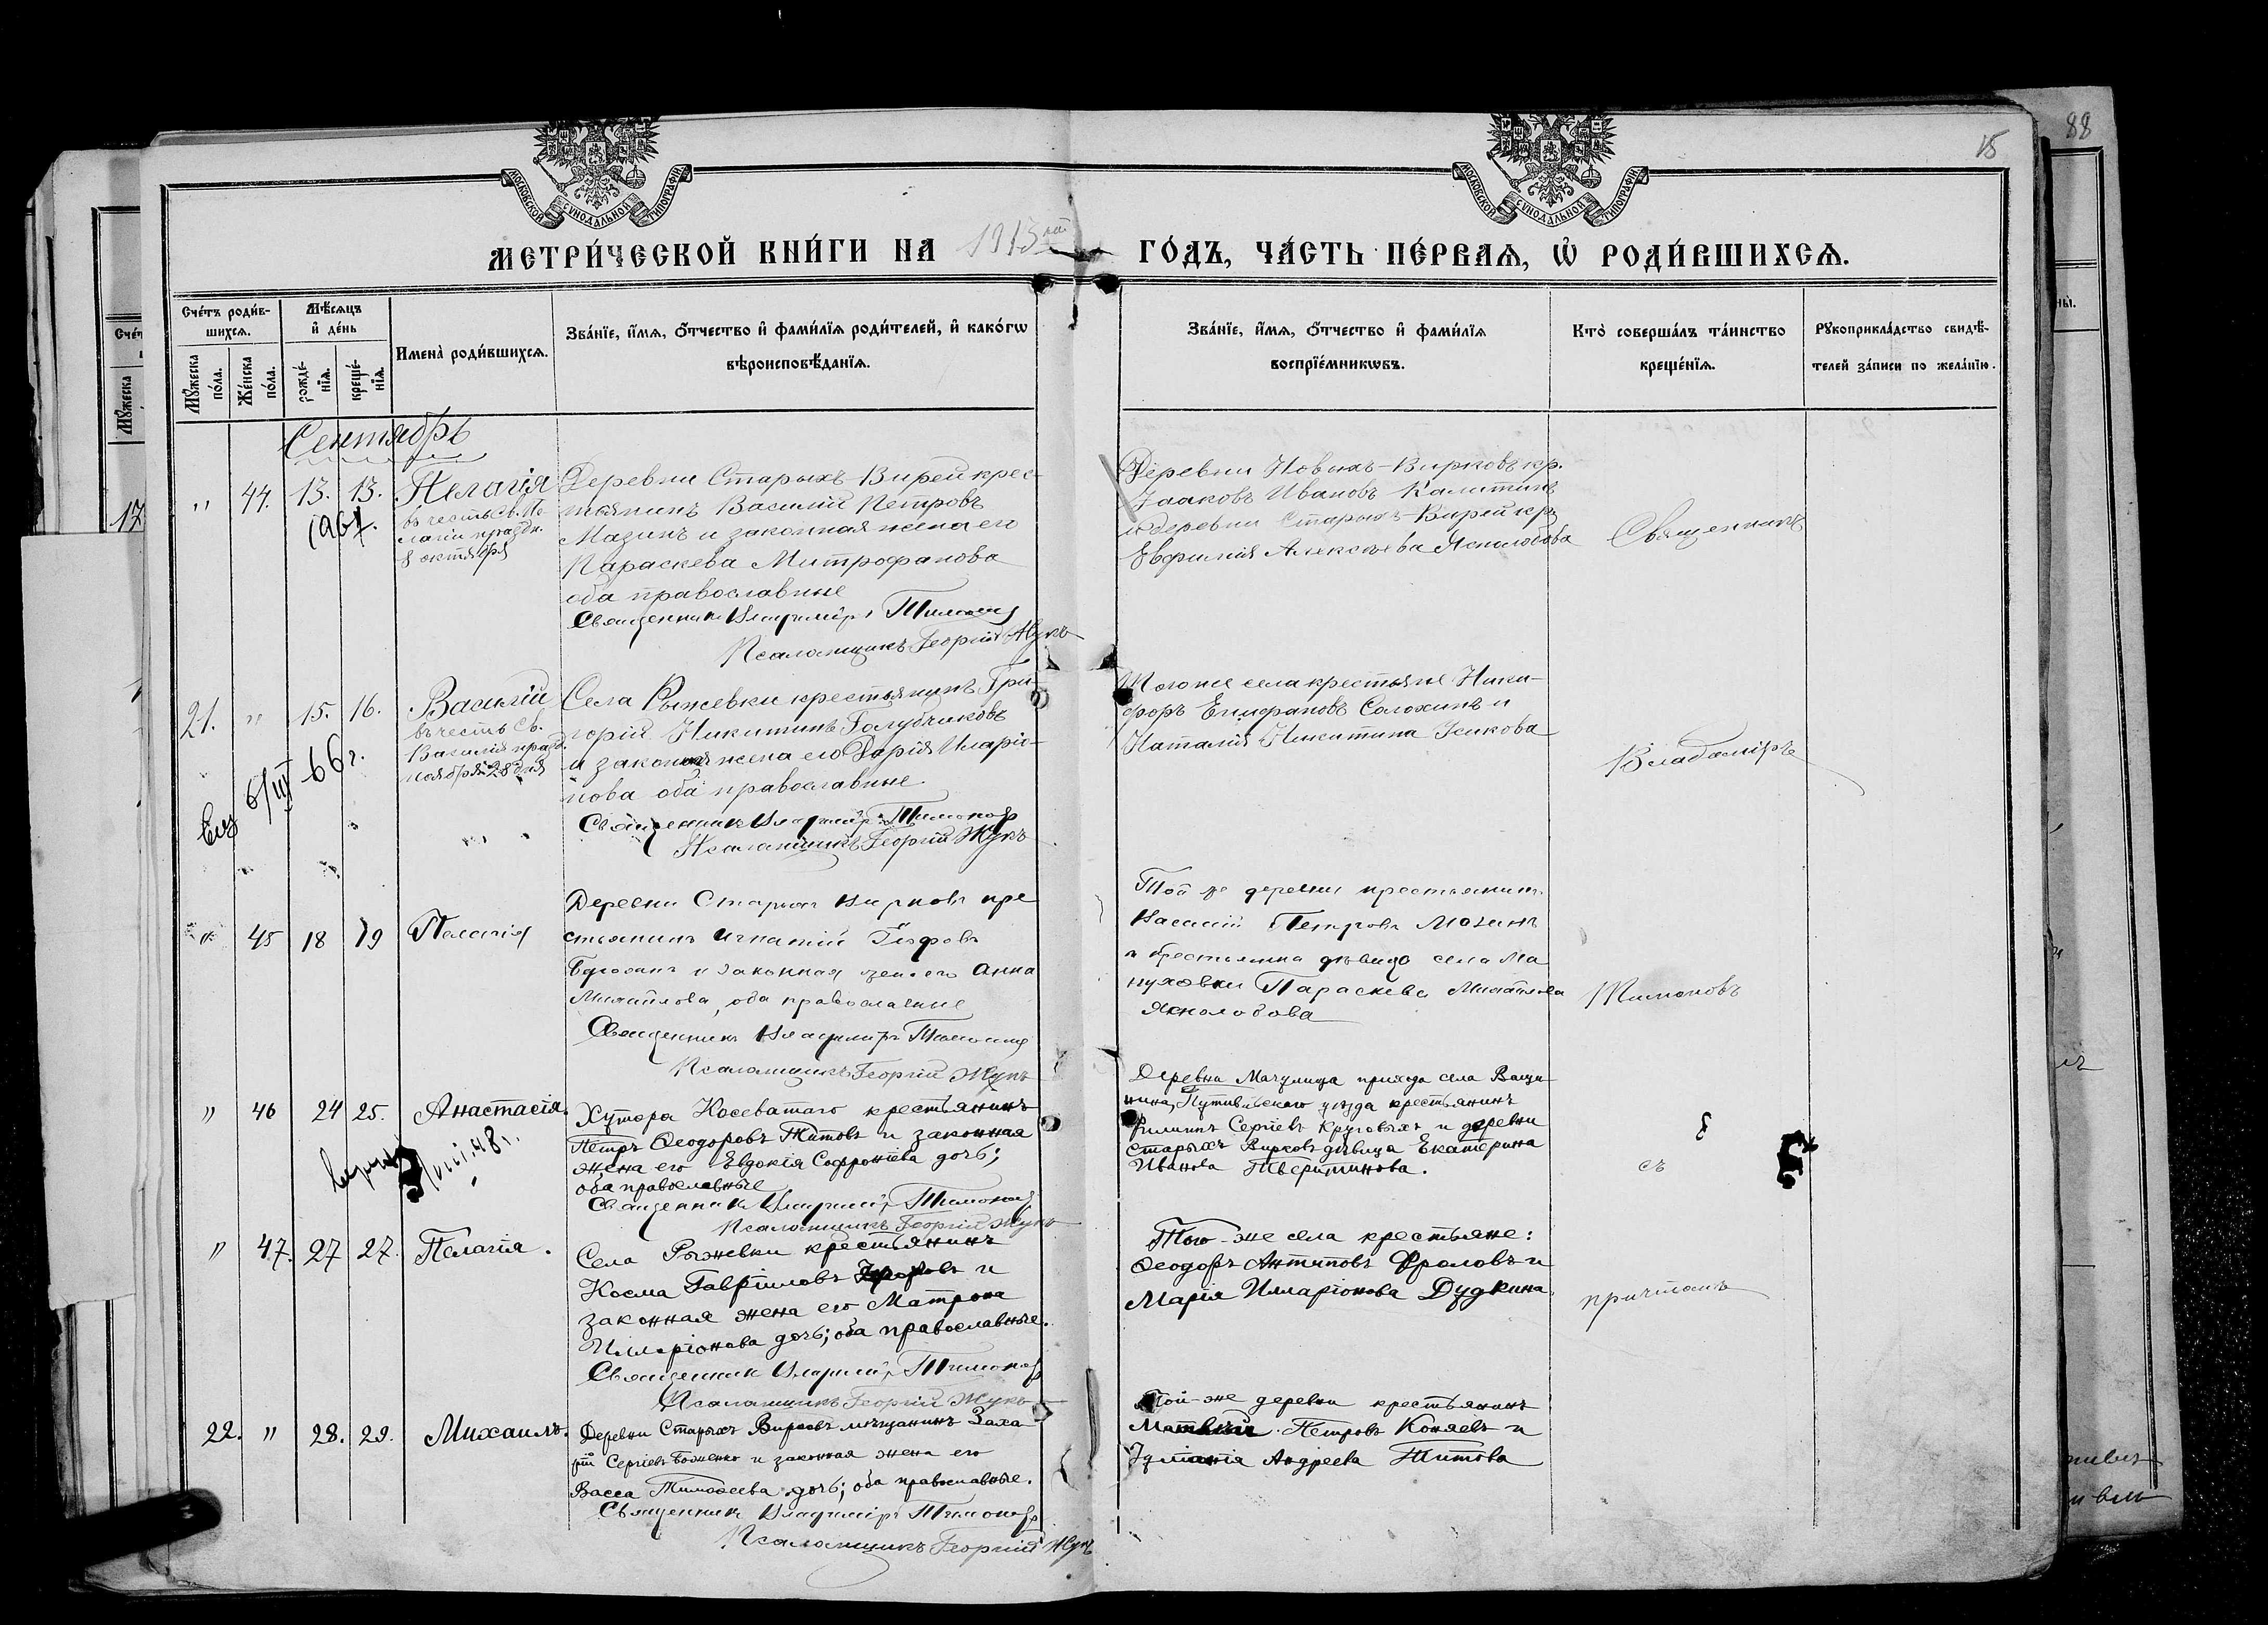 88
15
МОСКОВСКОЙ СѴНОДАЛЬНОЙ ТИПОГРАФІИ
МОСКОВСКОЙ СѴНОДАЛЬНОЙ ТИПОГРАФІИ
МЕТРИ́ЧЕСКОЙ КНИ́ГИ НА 1913 ГО́ДЪ, ЧА́СТЬ ПЕ́РВАѦ, Ѡ҆ РОДИ́ВШИХСѦ.
Сче́тъ роди́вшихсѧ.
Мꙋ́жеска по́ла.
Же́нска по́ла.
Мѣ́сѧцъ и҆ де́нь
рожде́нїѧ.
креще́нїѧ.
Имена̀ роди́вшихсѧ.
Зва́нїе, и҆́мѧ, ѻ҆́тчество и҆ фами́лїѧ роди́телей, и҆ како́гѡ
вѣроисповѣ́данїѧ.
Зва́нїе, и҆́мѧ, ѻ҆́тчество и҆ фами́лїѧ
воспрїе́мникѡвъ.
Кто̀ соверша́лъ та́инство
креще́нїѧ.
Рꙋкоприкла́дство свидѣ́-
телей за́писи по жела́нїю.
Сентябрь
" 44. 13. 13. Пелагія
въ честь Св. Пе-
лагіи праздн.
8 октября
1967.
Деревни Старыхъ Вирей крес-
тьянинъ Василій Петровъ
Мазинъ и законная жена его
Параскева Митрофанова
оба православные
Священникъ Владиміръ Тимоновъ
Псаломщикъ Георгій Жукъ
Деревни Новыхъ-Вирковъ кр.
Іаковъ Ивановъ Калитинъ
и деревни Старыхъ-Вирей кр.
Евфимія Алексѣева Яснолобова
Священникъ
21. " 15. 16. Василій
въ честь Св.
Василія празд.
ноября 28 дня
6/III 66 г.
Села Рыжевки крестьянинъ Гри-
горій Никитинъ Голубчиковъ
и законная жена его Дарія Иларіо-
нова оба православные
Священникъ Владиміръ Тимоновъ
Псаломщикъ Георгій Жукъ
Того же села крестьяне Ники-
форъ Епифановъ Солохинъ и
Наталія Никитина Усикова
Владиміръ
" 45 18 19 Пелагія
Деревни Старыхъ Вирковъ кре
стьянинъ Игнатій
и законная жена его Анна
Михайлова, оба православные
Священникъ Владиміръ Тимоновъ
Псаломщикъ Георгій Жукъ
Той же деревни крестьянинъ
Василій Петровъ Мазинъ
и крестьянка дѣвица села Ма
нуховки Параскева Михайлова
Яснолобова
Тимоновъ
" 46 24 25. Анастасія.
48 г.
Хутора Косеватаго крестьянинъ
Петръ Ѳеодоровъ Титовъ и законная
жена его Евдокія Софроніева дочь;
оба православные
Священникъ Владиміръ Тимоновъ
Псаломщикъ Георгій Жукъ
Деревни Мачулища прихода села Ваща-
нина, Путивльскаго уѣзда крестьянинъ
Филиппъ Сергіевъ Круговыхъ и деревни
Старыхъ Вирковъ дѣвица Екатерина
Иванова Тверитинова.
съ
" 47. 27 27. Пелагія.
Села Рыжевки крестьянинъ
Косма Гавріиловъ и
законная жена его Матрона
Илларіонова дочь; оба православные.
Священникъ Владиміръ Тимоновъ
Псаломщикъ Георгій Жукъ
Того-же села крестьяне:
Ѳеодоръ Антиповъ Фроловъ и
Марія Илларіонова Дудкина
причтомъ
22. " 28. 29. Михаилъ.
Деревни Старыхъ Вирковъ мѣщанинъ Заха
рій Сергіевъ Боженко и законная жена его
Васса Тимоѳеева дочь; оба православные.
Священникъ Владиміръ Тимоновъ
Псаломщикъ Георгій Жукъ
Той-же деревни крестьянинъ
Матвѣй Петровъ Коняевъ и
Іуліанія Андреева Титова